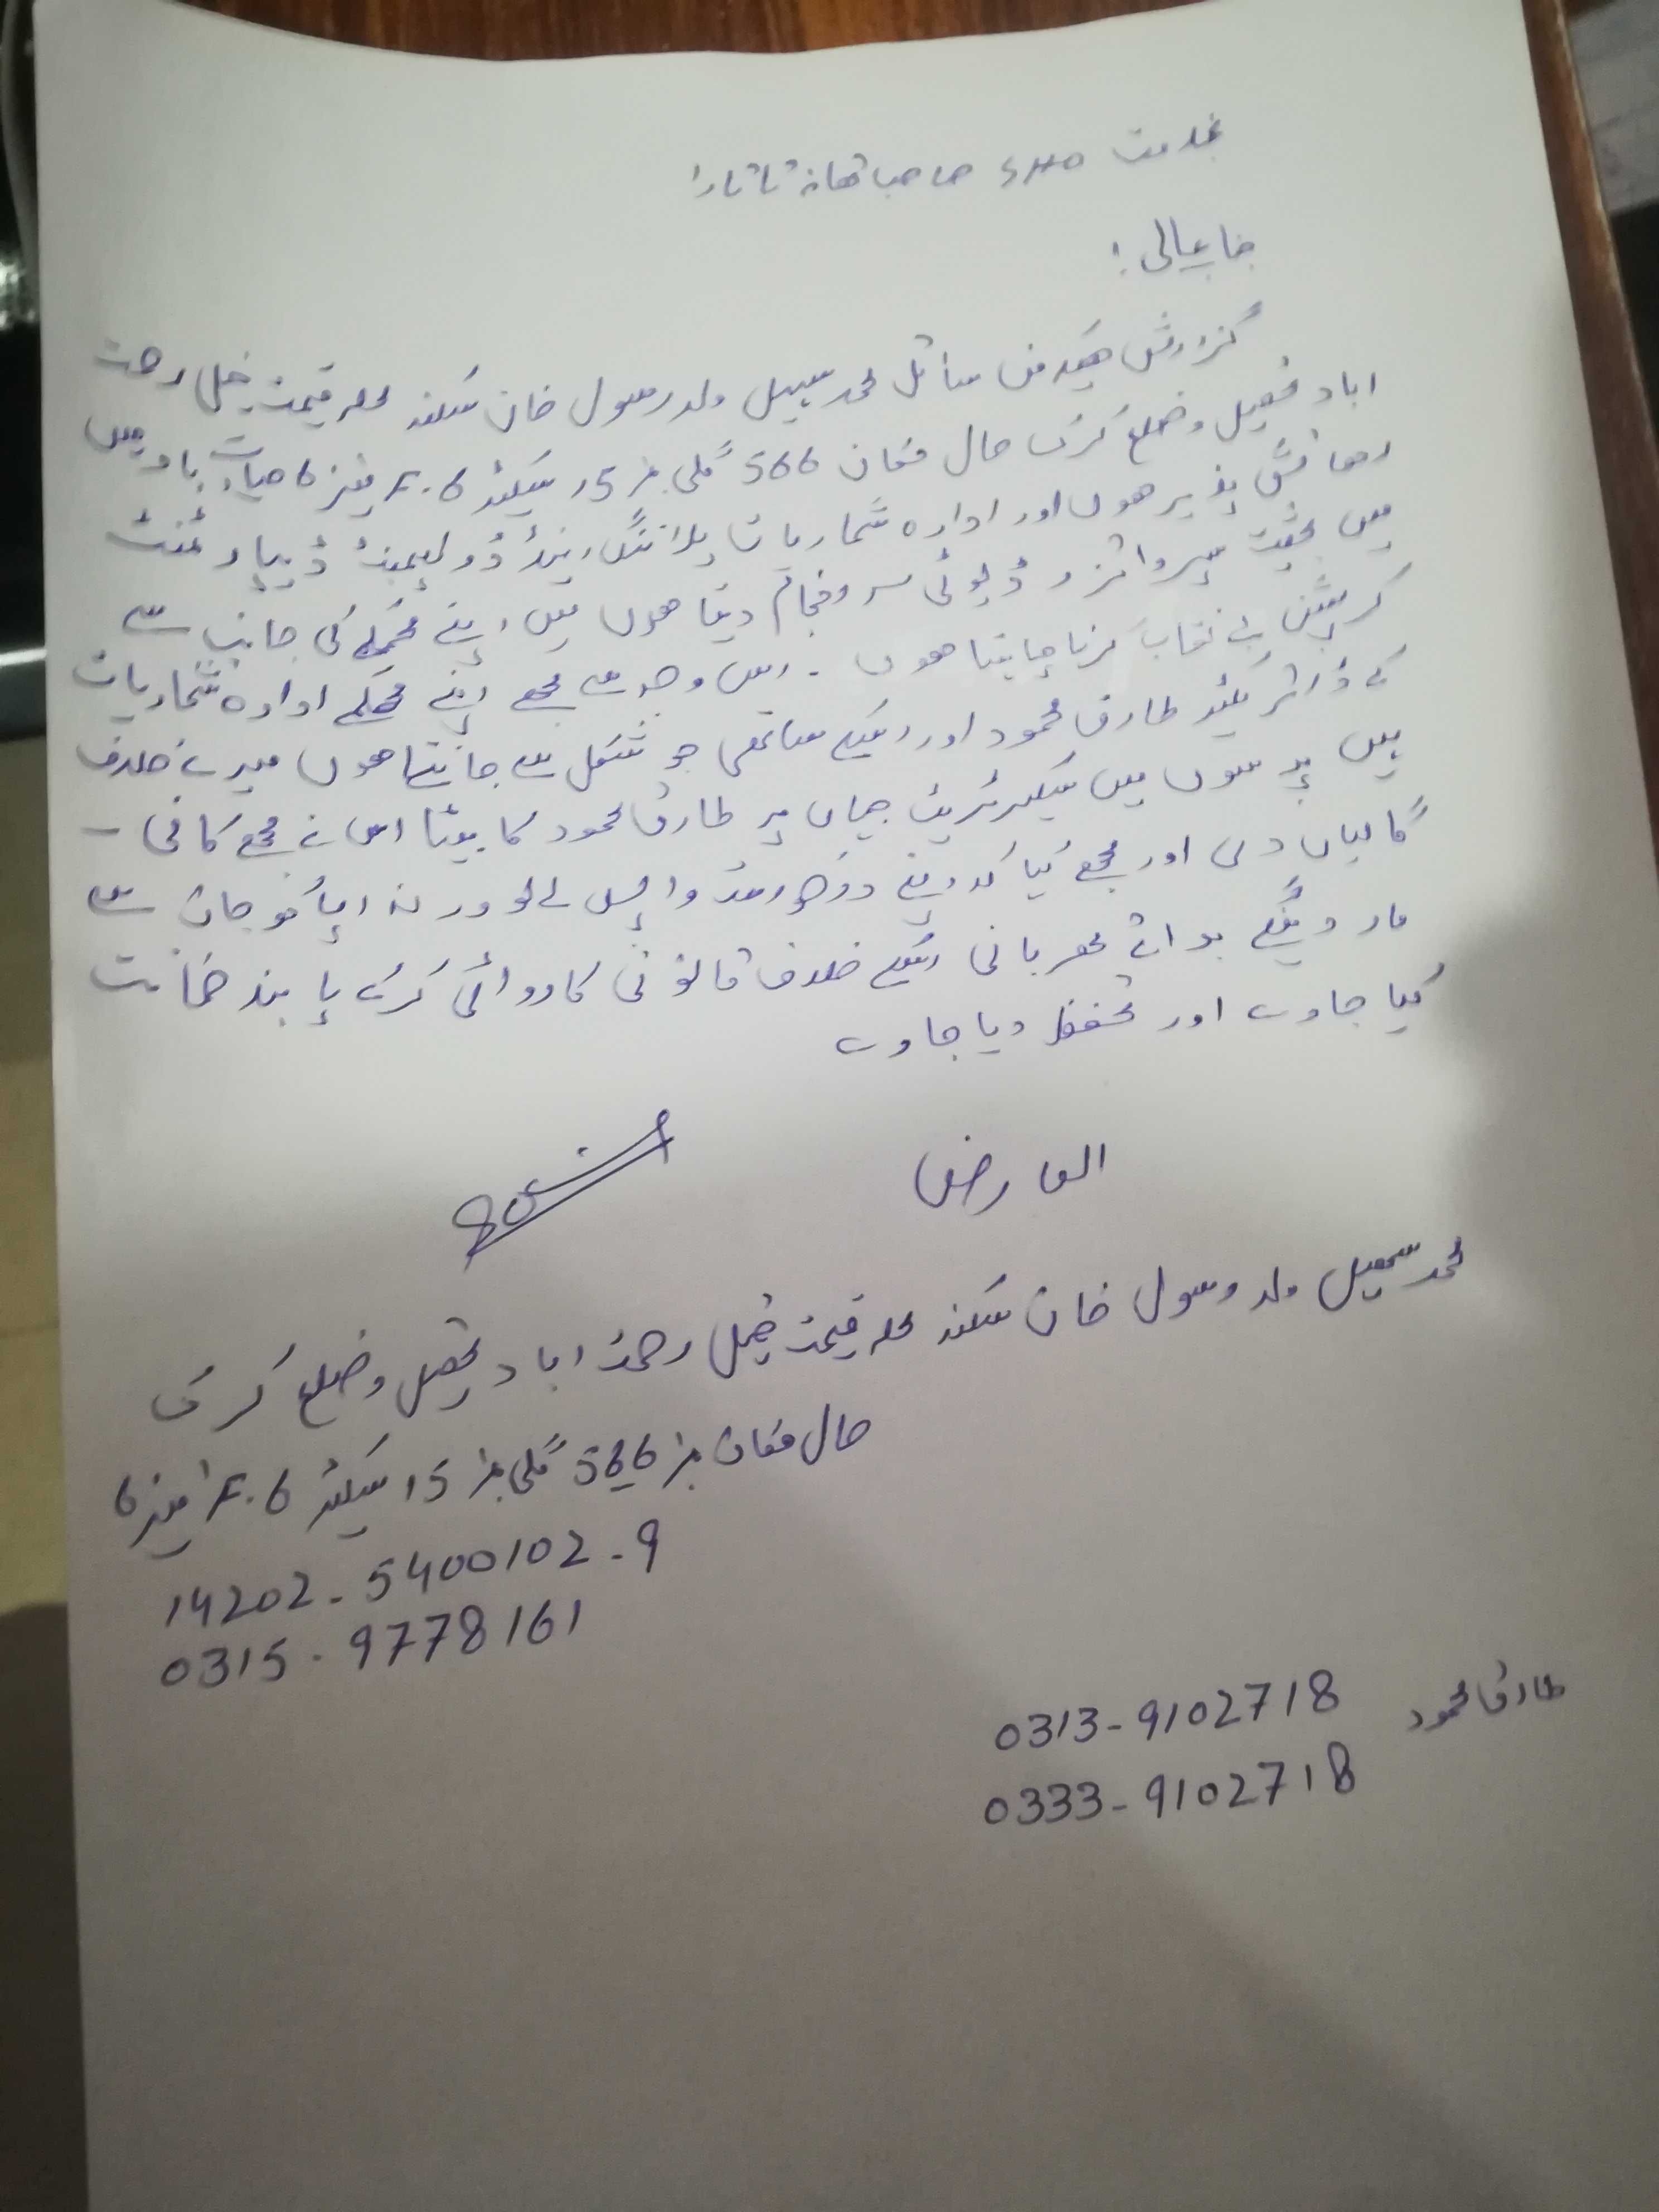 بخدمت SHO صاحب تھانہ تاتارا
جناب عالی :
گزارش ھیکہ من سائل محمد سہیل ولد رسول خان سکنہ محلہ قیمت خیل رحمت
اباد تحصیل و ضلع کرک حال مکان 566 گلی نمبر 15 سیکٹر F.6 فیز 6 حیات اباد میں
رھائش پذیر ھوں اور ادارہ شماریات پلاننگ اینڈ ڈولپمنٹ ڈیپارٹمنٹ
میں بحیثیت سپروائزر ڈیوٹی سروانجام دیتا ھوں میں اپنے محکمے کی جانب سے
کرپشن بے نقاب کرنا چاہتا ھوں ۔ اس وجہ سے مجھے اپنے محکمے ادارہ شماریات
کے ڈائریکٹر طارق محمود اور اسکے ساتھی جو شکل سے جانتا ھوں میرے خلاف
ہیں پرسوں میں سیکرٹریٹ جہاں پر طارق محمود کا بیٹا اس نے مجھے کافی –
گالیاں دی اور مجھے کہا کہ اپنے درخواست واپس لے لو ورنہ اپکو جان سے
مار دینگے برائے مھربانی اسکے خلاف قانونی کاروائی کرکے پابند ضمانت
کیا جاوے اور تحفظ دیا جاوے
العارض
محمد سہیل ولد رسول خان سکنہ محلہ قیمت خیل رحمت اباد تحصیل و ضلع کرک
حال مکان نمبر 566 گلی نمبر 15 سیکٹر F.6 فیز 6
14202-5400102-9
0315-9778161
طارق محمود 0313-9102718
0333-9102718